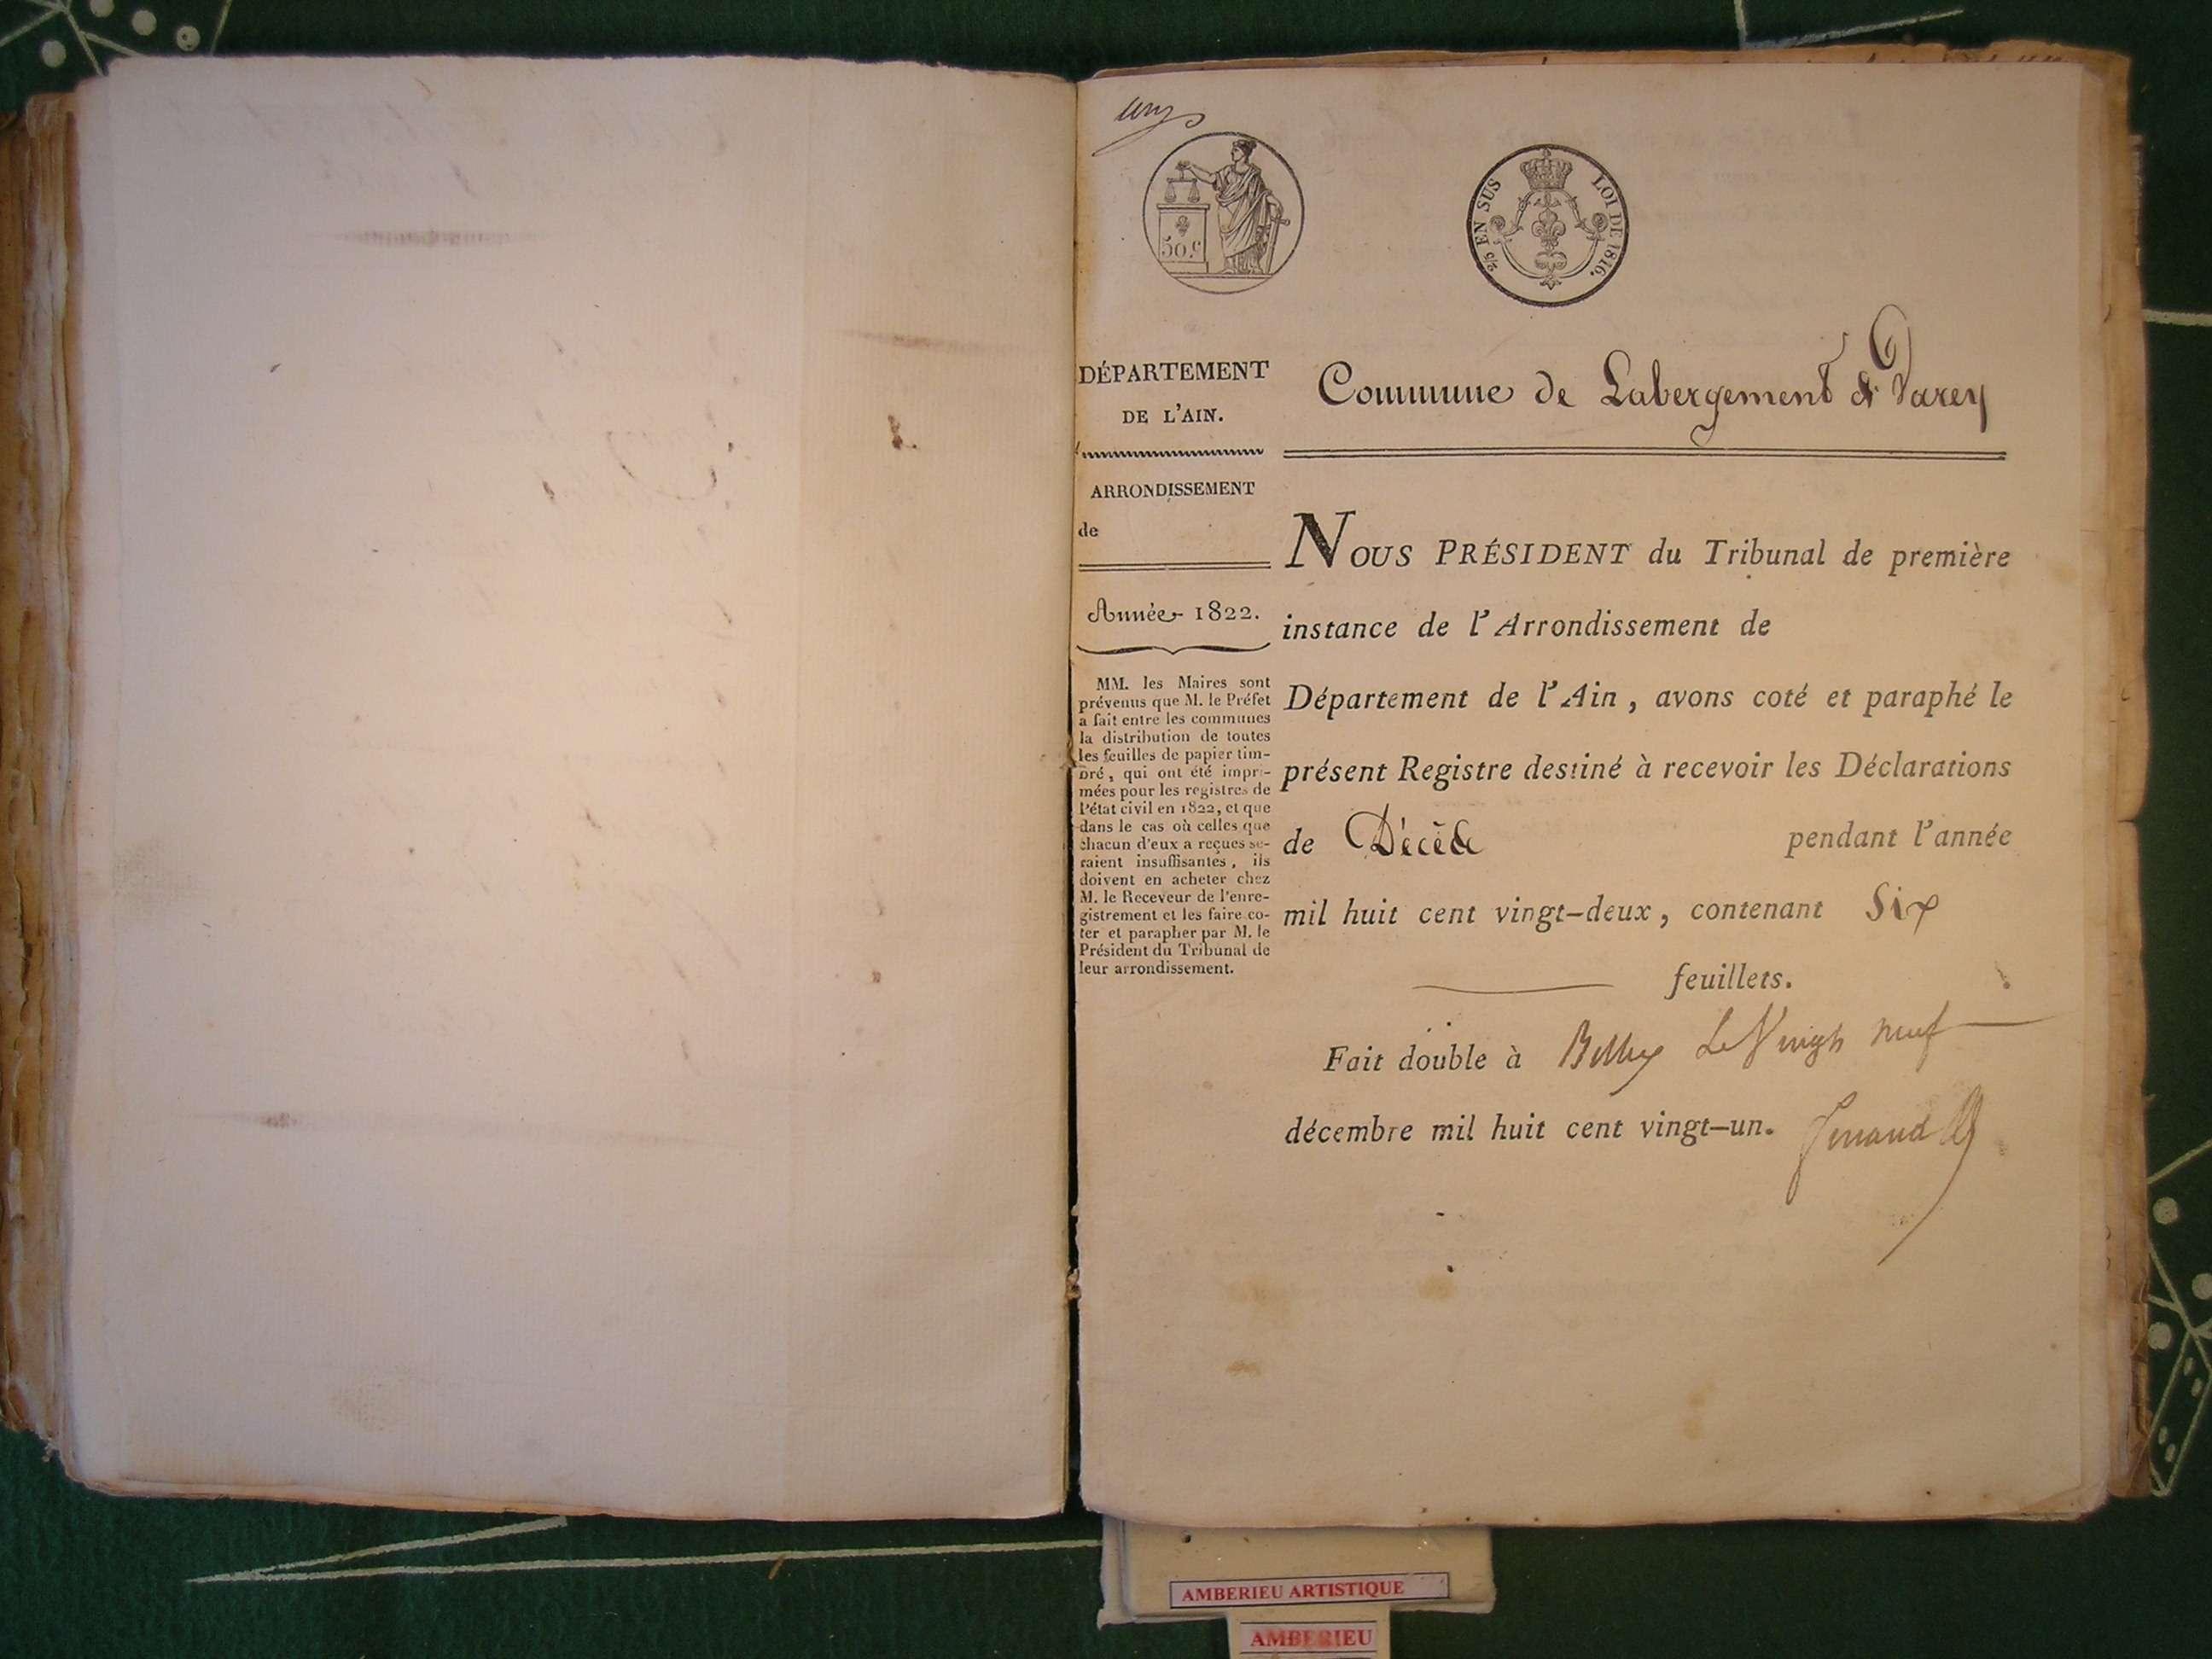 50.c
2/5 EN SUS
LOI DE 1816.
DÉPARTEMENT
DE L'AIN.
Commune de Labergement & Varey
ARRONDISSEMENT
de
Année 1822.
MM. les Maires sont
prévenus que M. le Préfet
a fait entre les communes
la distribution de toutes
les feuilles de papier tim-
bré, qui ont été impri-
mées pour les registres de
l'état civil en 1822, et que
dans le cas où celles que
chacun d'eux a reçues se-
raient insuffisantes, ils
doivent en acheter chez
M. le Receveur de l'enre-
gistrement et les faire co-
ter et parapher par M. le
Président du Tribunal de
leur arrondissement.
NOUS PRÉSIDENT du Tribunal de première
instance de l'Arrondissement de
Département de l'Ain, avons coté et paraphé le
présent Registre destiné à recevoir les Déclarations
de Décès pendant l'année
mil huit cent vingt-deux, contenant Six
feuillets.
Fait double à Belley Le Vingt neuf
décembre mil huit cent vingt-un.
AMBERIEU ARTISTIQUE
AMBERIEU